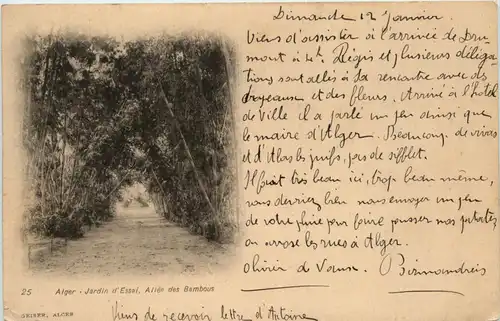 Dimanche 12 Janvier.
Viens d'assister à l'arrivée de Dru
mont à 4h. Régis et plusieurs déléga
tions sont allés à sa rencontre avec des
drapeaux et des fleurs. Arrivé à l'hôtel
de Ville il a parlé un peu ainsi que
le maire d'Alger. Beaucoup de vivas
et d'A bas les juifs, pas de sifflet.
Il fait très beau ici, trop beau même,
vous devriez bien nous envoyer un peu
de votre pluie pour faire pousser nos patates,
on arrose les rues à Alger.
Olivier de Birmandreis
25 Alger - Jardin d'Essai, Allée des Bambous
GEISER, ALGER
Viens de recevoir lettre d'Antoine